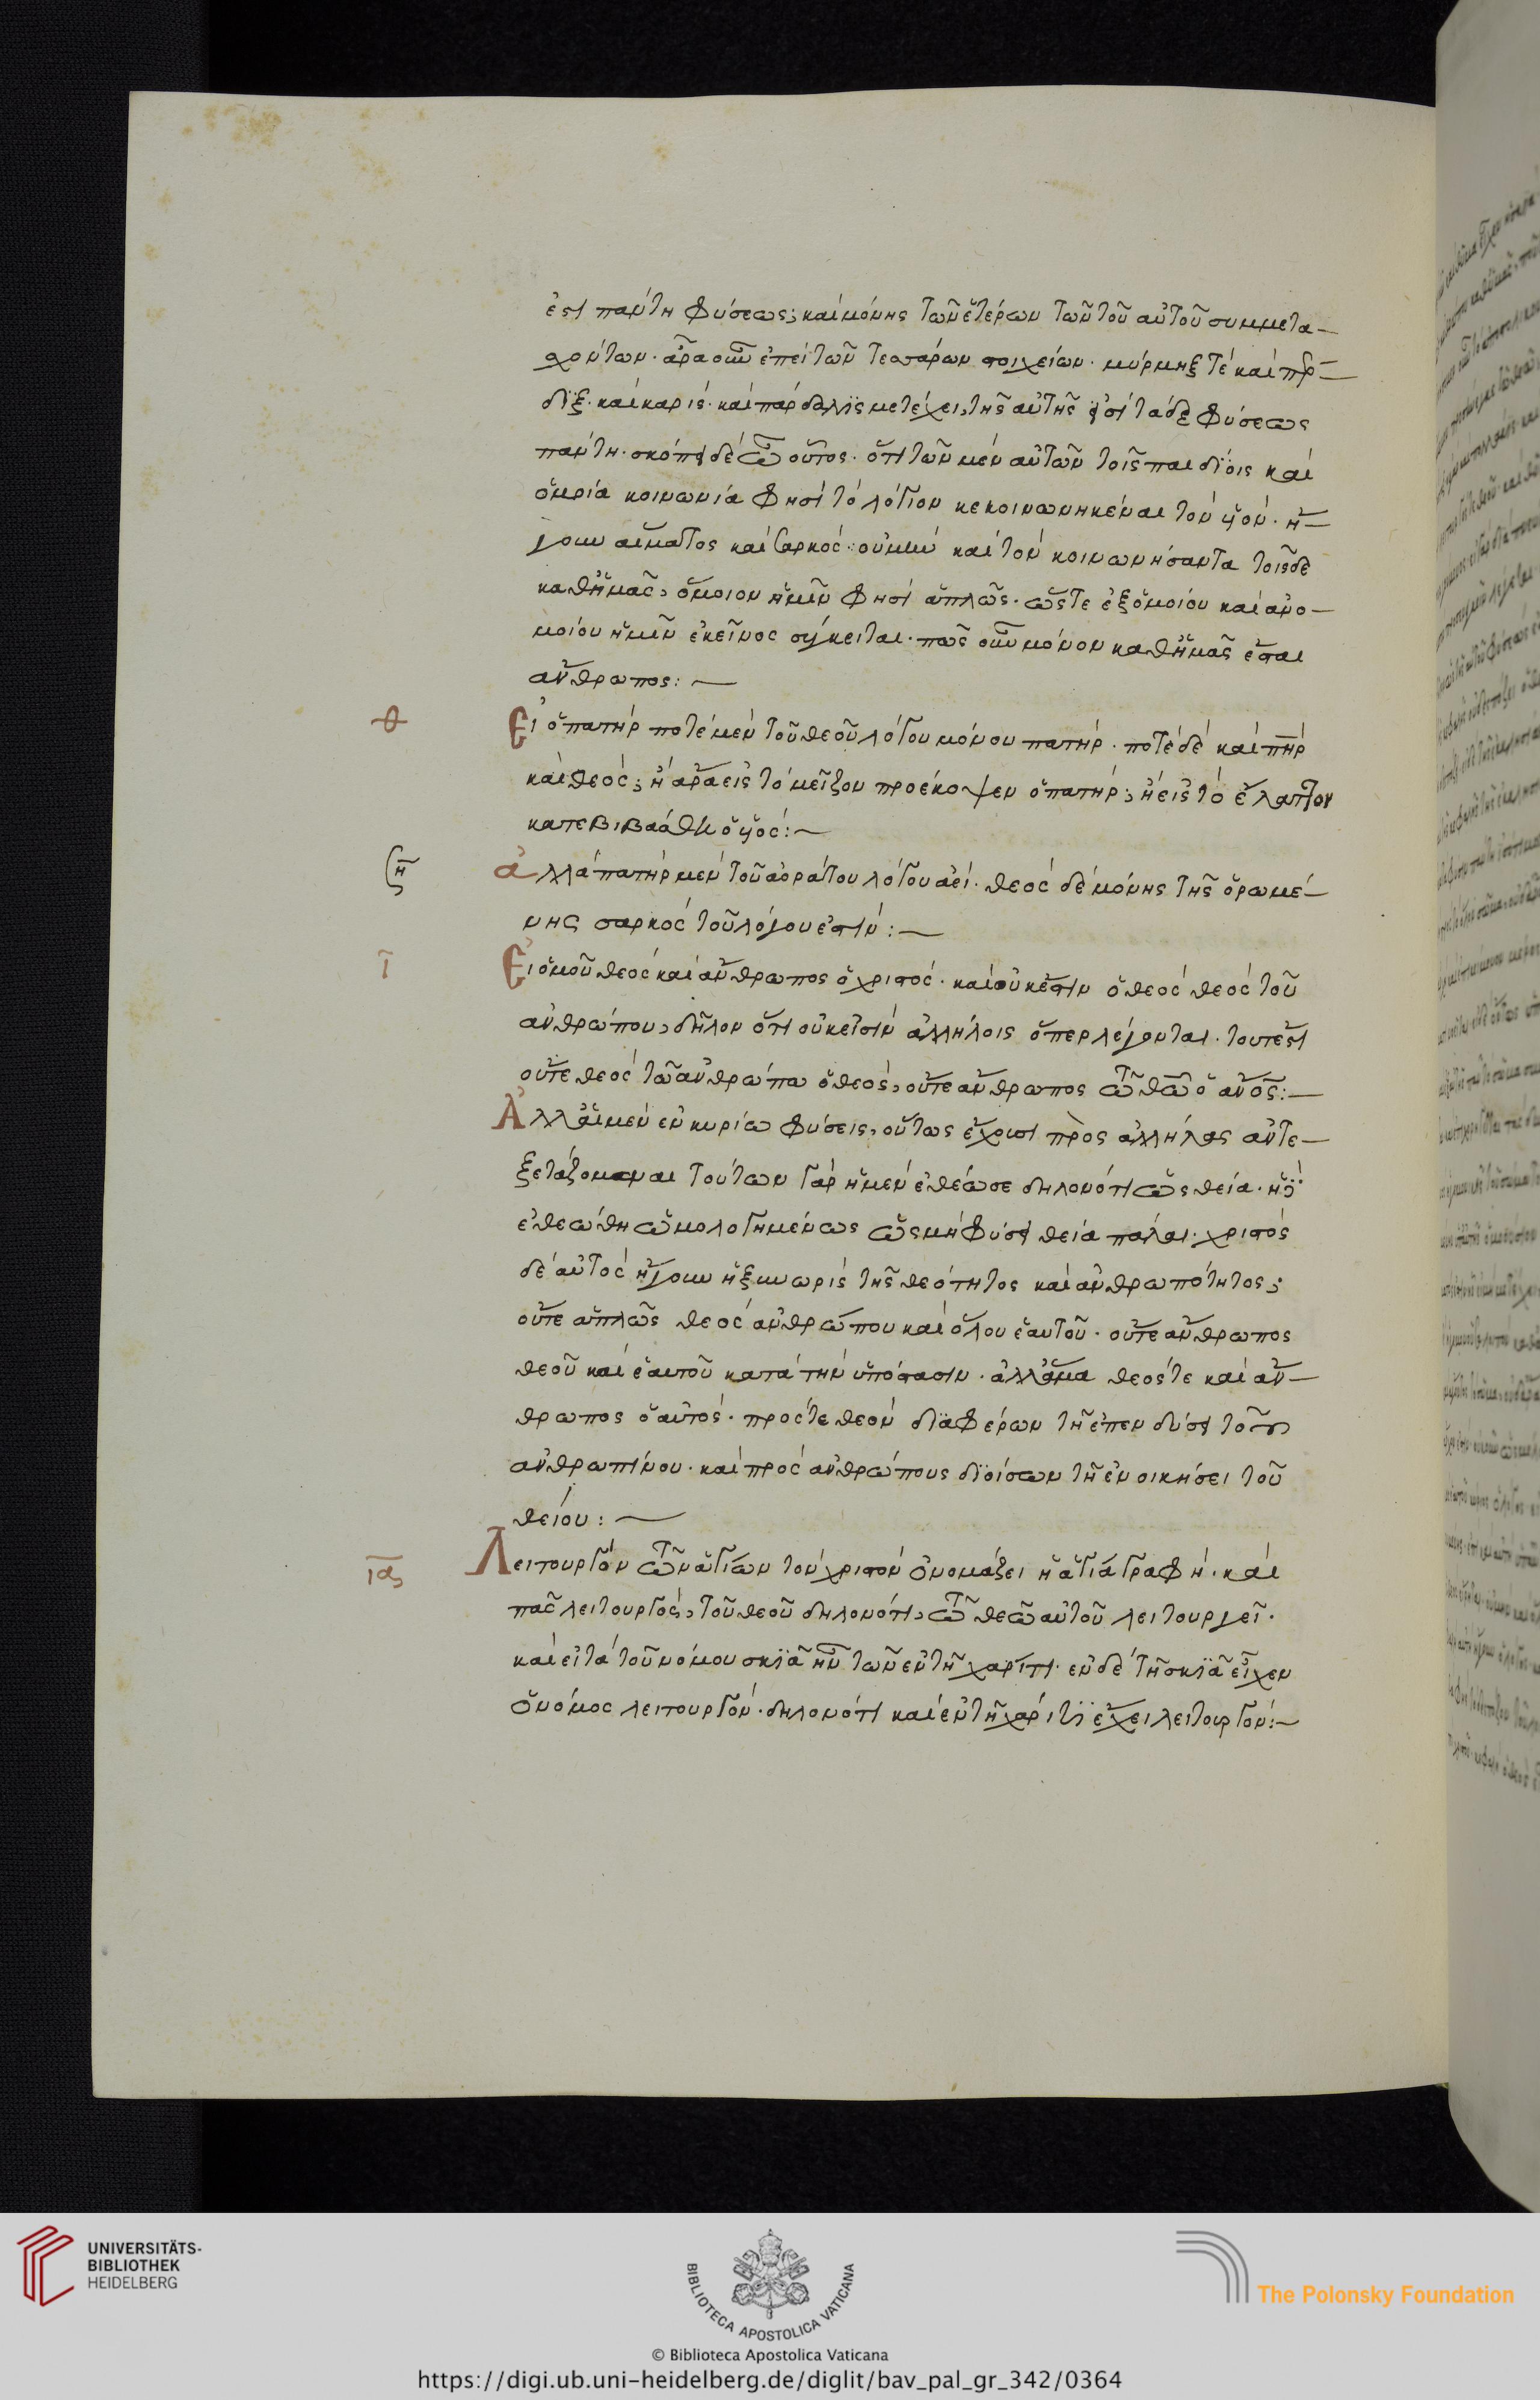 ἐστὶ πάντη φύσεως; καὶ μόνης τῶν ἑτέρων τῶν τοῦ αὐτοῦ συμμετα-
χόντων· ἆρα οὖν ἐπεὶ τῶν τεσσάρων στοιχείων· μύρμηξ τὲ καὶ πέρ-
διξ· καὶ καρίς· καὶ πάρδαλις μετέχει, τῆς αὐτῆς εἰσὶ τάδε φύσεως
πάντη· σκόπει δὲ οὕτως· ὅτι τῶν μὲν αὐτῶν τοῖς παιδίοις καὶ
κοινωνία φησὶ τὸ λόγιον κεκοινωνηκέναι τὸν υἱόν· ἤ-
γουν αἵματος καὶ σαρκός· οὐ μὴν καὶ τὸν κοινωνήσαντα τοῖσδε
καθ' ἡμᾶς, ὅμοιον ἡμῖν φησὶ ἁπλῶς· ὥστε ἐξ ὁμοίου καὶ ἀνο-
μοίου ἡμῖν ἐκεῖνος σύγκειται· πῶς οὖν μόνον καθ' ἡμᾶς ἔσται
ἄνθρωπος:-
θ Εἰ ὁ πατὴρ ποτὲ μὲν τοῦ θεοῦ λόγου μόνου πατήρ· ποτὲ δὲ καὶ πηρ
καὶ θεός; ἢ ἆρα εἰς τὸ μεῖζον προέκοψεν ὁ πατήρ; ἢ εἰς τὸ ἔλαττον
κατεβιβάσθη ὁ υἱός:-
η Ἀλλὰ πατὴρ μὲν τοῦ ἀοράτου λόγου ἀεί· θεὸς δὲ μόνης τῆς ὁρωμέ-
νης σαρκὸς τοῦ λόγου ἐστίν:-
ι Εἰ ὁμοῦ θεὸς καὶ ἄνθρωπος ὁ χριστός· καὶ οὐκ ἔστιν ὁ θεὸς θεὸς τοῦ
ἀνθρώπου, δῆλον ὅτι οὐκ εἰσὶν ἀλλήλοις ὅπερ λέγονται· τουτέστι
οὔτε θεὸς τῶ ἀνθρώπω ὁ θεός, οὔτε ἄνθρωπος τῶ θω ὁ ανος:-
Ἀλλ' αἱ μὲν ἐν κυρίω φύσεις, οὕτως ἔχουσι πρὸς ἀλλήλας ἀντε-
ξεταζόμεναι τούτων γὰρ ἡ μὲν ἐθέωσε δηλονότι ὡς θεία· ἡ δὲ
ἐθεώθη ὡμολογημένως ὡς μὴ φύσει θεία πάλαι· χριστὸς
δὲ αὐτὸς ἤγουν ἡ ξυνωρὶς τῆς θεότητος καὶ ἀνθρωπότητος;
οὔτε ἁπλῶς θεὸς ἀνθρώπου καὶ ὅλου ἑαυτοῦ· οὔτε ἄνθρωπος
θεοῦ καὶ ἑαυτοῦ κατὰ τὴν ὑπόστασιν· ἀλλ' ἅμα θεός τε καὶ ἄν-
θρωπος ὁ αὐτός· πρός τε θεὸν διαφέρων τῆ ἐπενδύσει τοῦ
ἀνθρωπίνου· καὶ πρὸς ἀνθρώπους διοίσων τῆ ἐνοικήσει τοῦ
θείου:-
ια Λειτουργὸν τῶν ἁγίων τὸν χριστὸν ὀνομάζει ἡ ἁγία γραφή· καὶ
πᾶς λειτουργός, τοῦ θεοῦ δηλονότι, τῶ θεῶ αὐτοῦ λειτουργεῖ·
καὶ εἰ τὰ τοῦ νόμου σκιὰ ἦν τῶν ἐν τῆ χάριτι· ἐν δὲ τῆ σκιᾶ εἶχεν
ὁ νόμος λειτουργόν· δηλονότι καὶ ἐν τῆ χάριτι ἔχει λειτουργόν:-
UNIVERSITÄTS-
BIBLIOTHEK
HEIDELBERG
BIBLIOTECA APOSTOLICA VATICANA
The Polonsky Foundation
© Biblioteca Apostolica Vaticana
https://digi.ub.uni-heidelberg.de/diglit/bav_pal_gr_342/0364